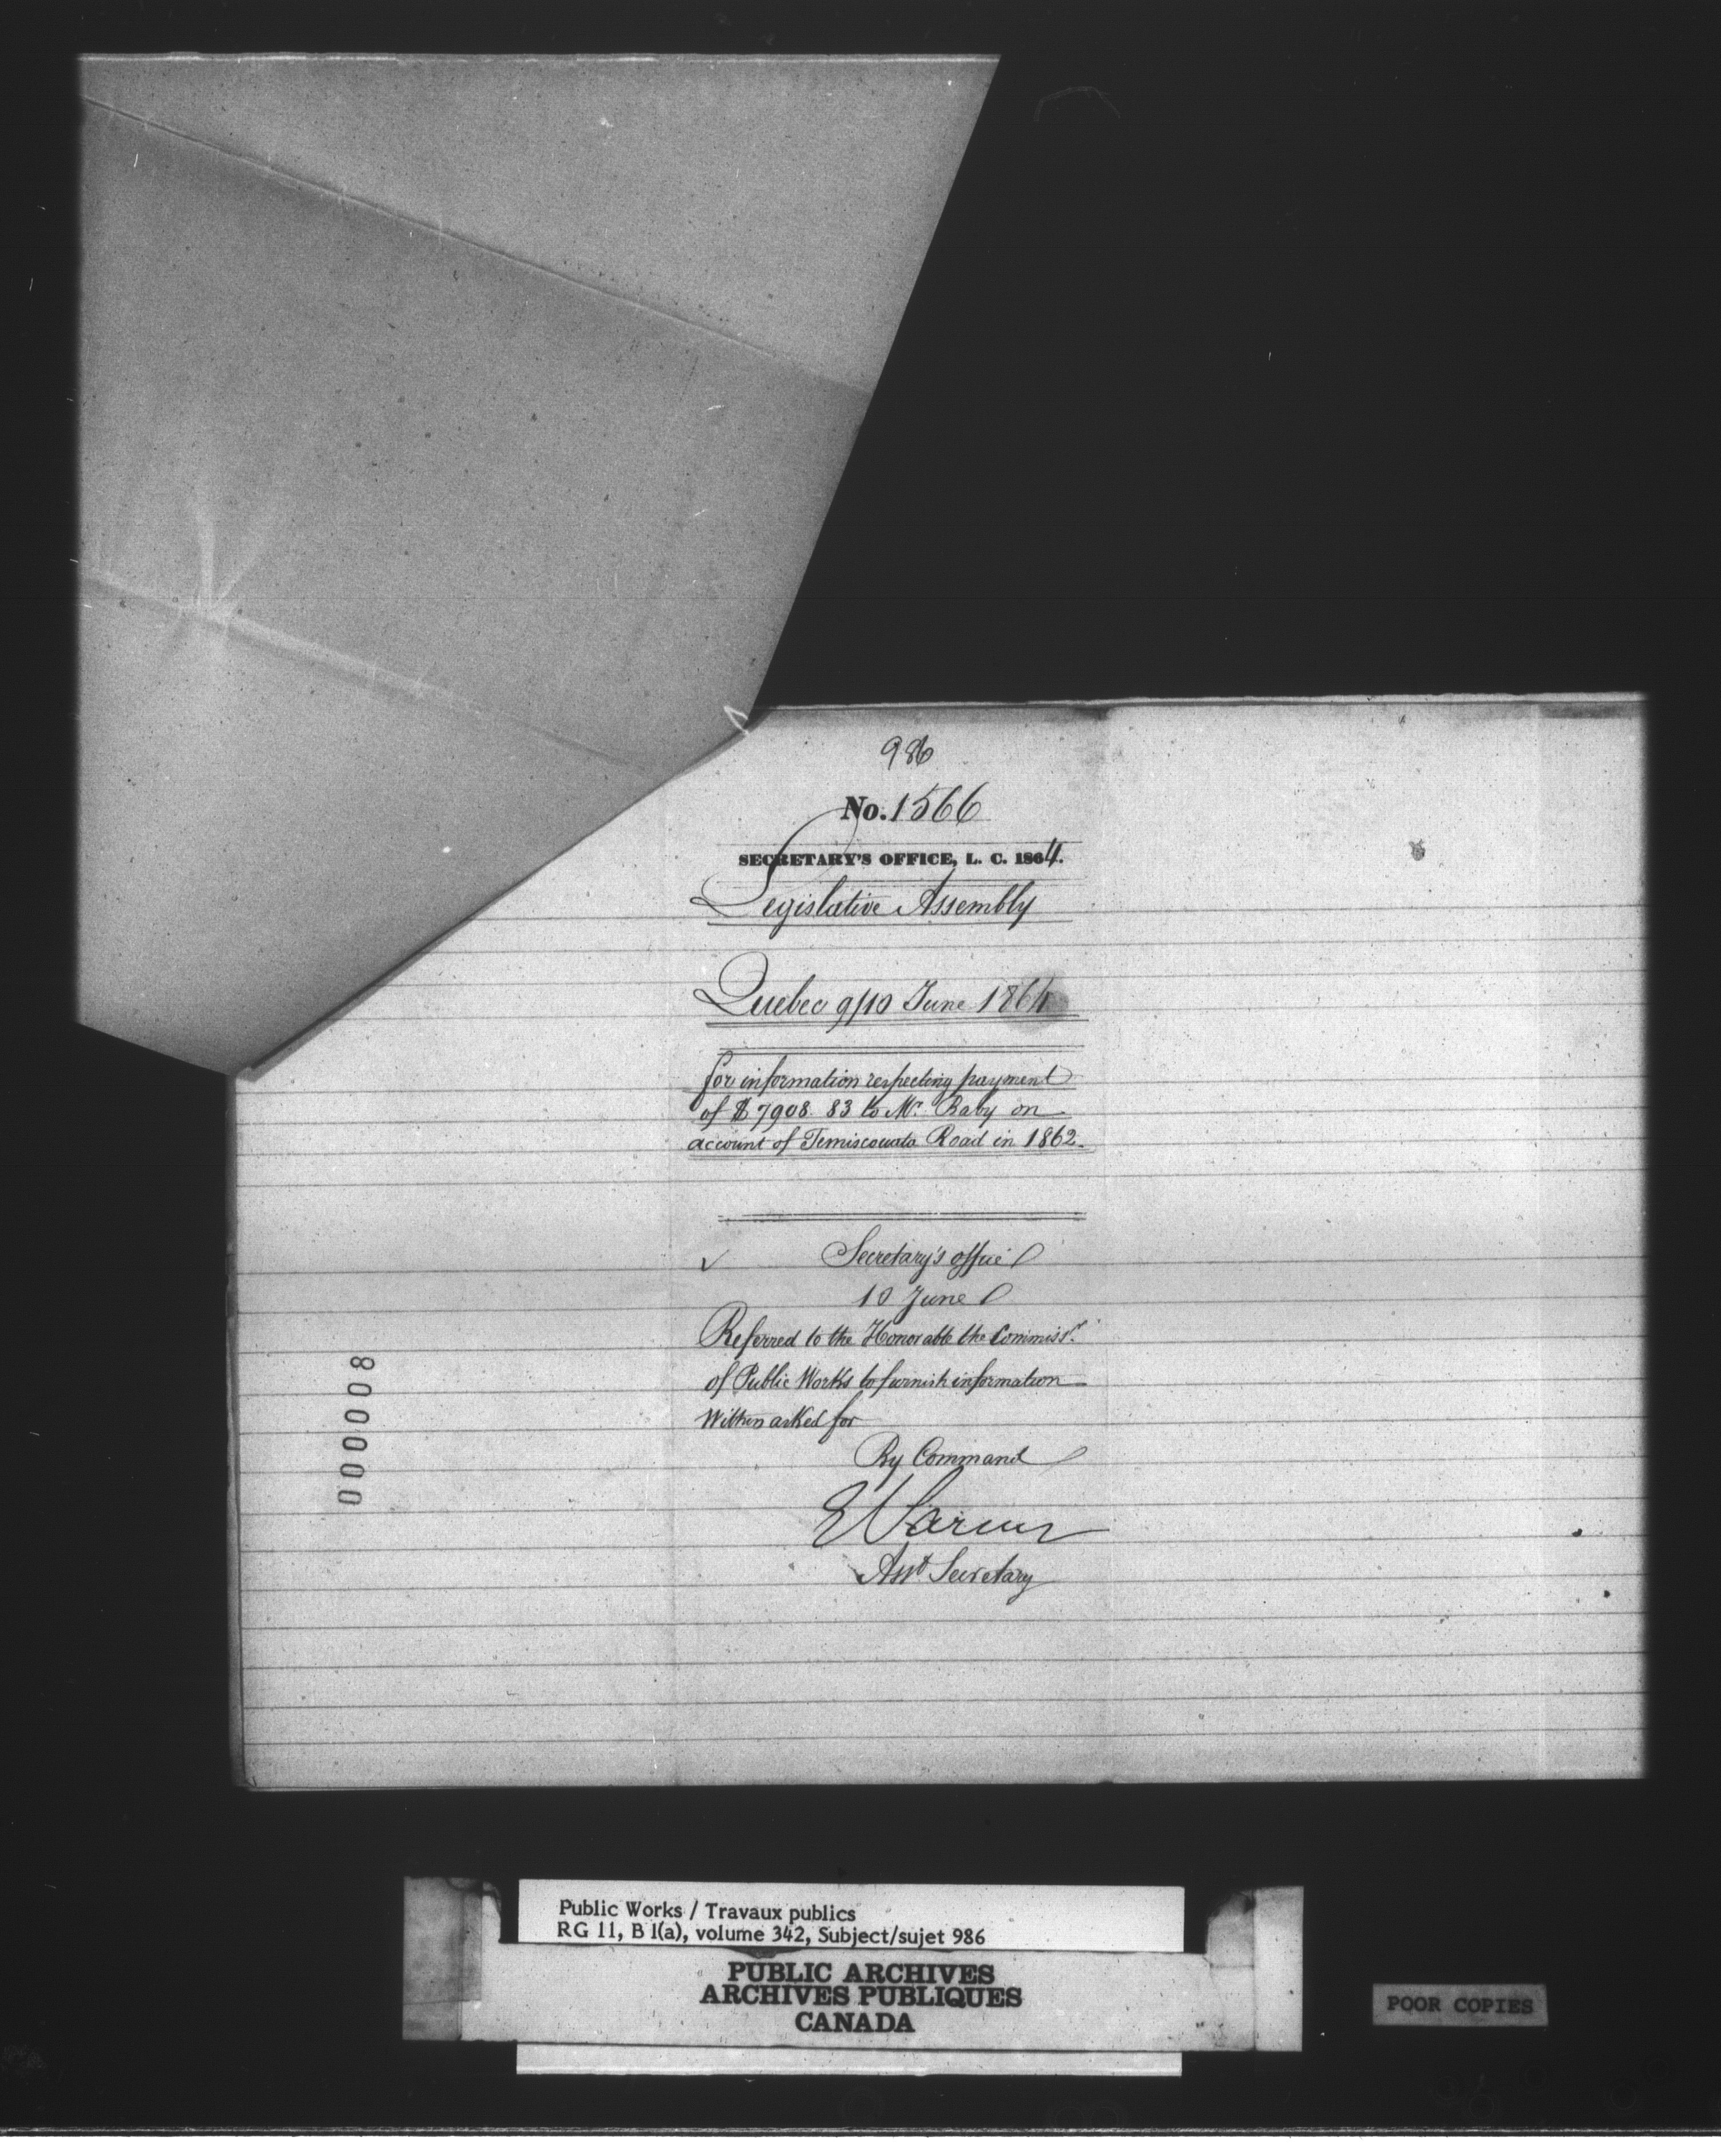 986
No. 1566
SECRETARY'S OFFICE, L. C. 1864.
Legislative Assembly
Quebec 9/10 June 1864
for information respecting payment
of $ 7908.83 to Mr. Baby on
account of Temiscouata Road in 1862.
Secretary's office
10 June
Referred to the Honorable the Commissr.
of Public Works to furnish information
Within asked for
By Command
E
Asst Secretary
000008
Public Works / Travaux publics
RG 11, B 1(a), volume 342, Subject/sujet 986
PUBLIC ARCHIVES
ARCHIVES PUBLIQUES
CANADA
POOR COPIES